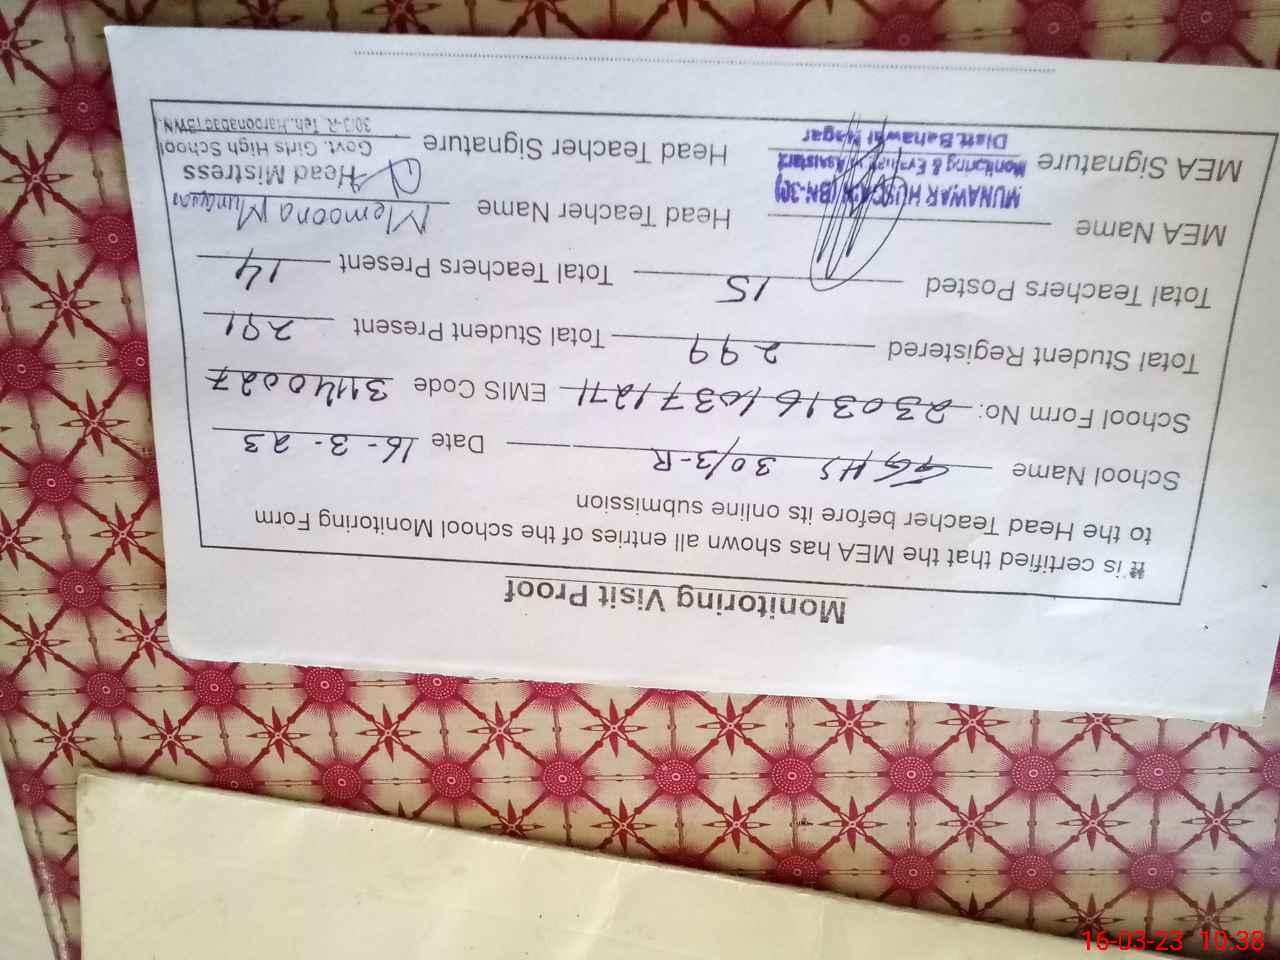 Monitoring Visit Proof
It is certified that the MEA has shown all entries of the school Monitoring Form
to the Head Teacher before its online submission
School Name GGHS 30/3-R Date 16-3-23
School Form No: 23031610371271 EMIS Code 31140027
Total Student Registered 299 Total Student Present 291
Total Teachers Posted 15 Total Teachers Present 14
MEA Name Head Teacher Name Memoona Munawar
MUNAWAR HUSSAIN (BN-30)
Monitoring & Evaluation Assistant
Distt. Bahawal Nagar
MEA Signature Head Teacher Signature
Head Mistress
Govt. Girls High School
30/3-R Teh. Haroonabad BWN.
16-03-23 10:38